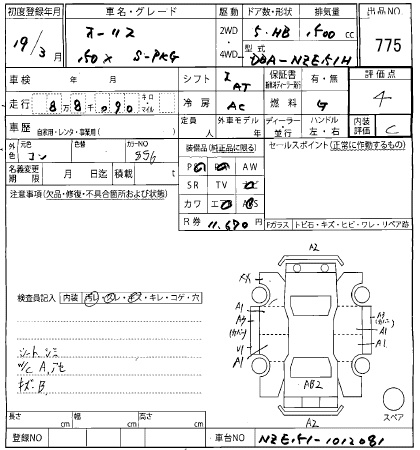 初度登録年月 車名・グレード 駆動 ドア数・形状 排気量 出品NO
19/3月 オーリス 150X S-PKG 2WD 4WD 5 HB 1,500cc 775
型式 DBA-NZE151H
車検 年 月 シフト I AT 保証書 有・無 評価点
走行 8万8千090 キロ・マイル 冷房 AC 燃料 G 4
車歴 自家用・レンタ・事業用( ) 定員 人 外車モデル 年 ディーラー・並行 ハンドル 左・右 内装評価 C
外色 元色 コン 色替 カラーNO 8S6
装備品(純正品に限る) セールスポイント(正常に作動するもの)
名義変更期限 月 日迄 積載 t
注意事項(欠品・修復・不具合箇所および状態)
AW
SR TV
カワ
R券 11,690 円
Fガラス トビ石・キズ・ヒビ・ワレ・リペア跡
検査員記入 内装 汚レ・スレ・キズ・キレ・コゲ・穴
A2
A1
A1
A1
A1
A1
シートシミ
W/C A,アセ
キズB
AB2
A2
スペア
長さ cm 幅 cm 高さ cm
登録NO 車台NO NZE151-1012081